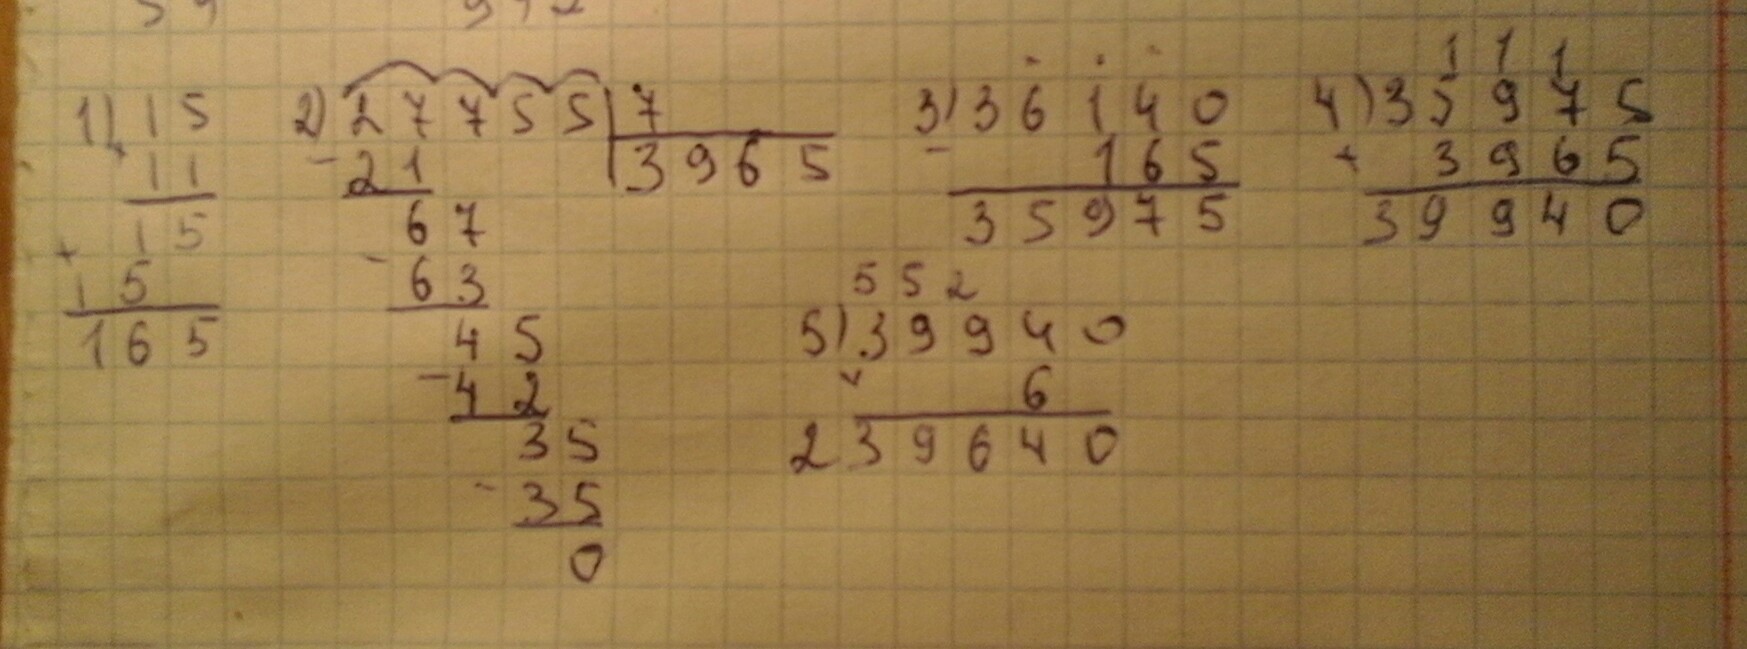 1) 15
× 11
15
+ 15
165
2) 27755 | 7
- 21 | 3965
67
- 63
45
- 42
35
- 35
0
3) 36140
- 165
35975
1 1 1
4) 35975
+ 3965
39940
5 5 2
5) 39940
× 6
239640